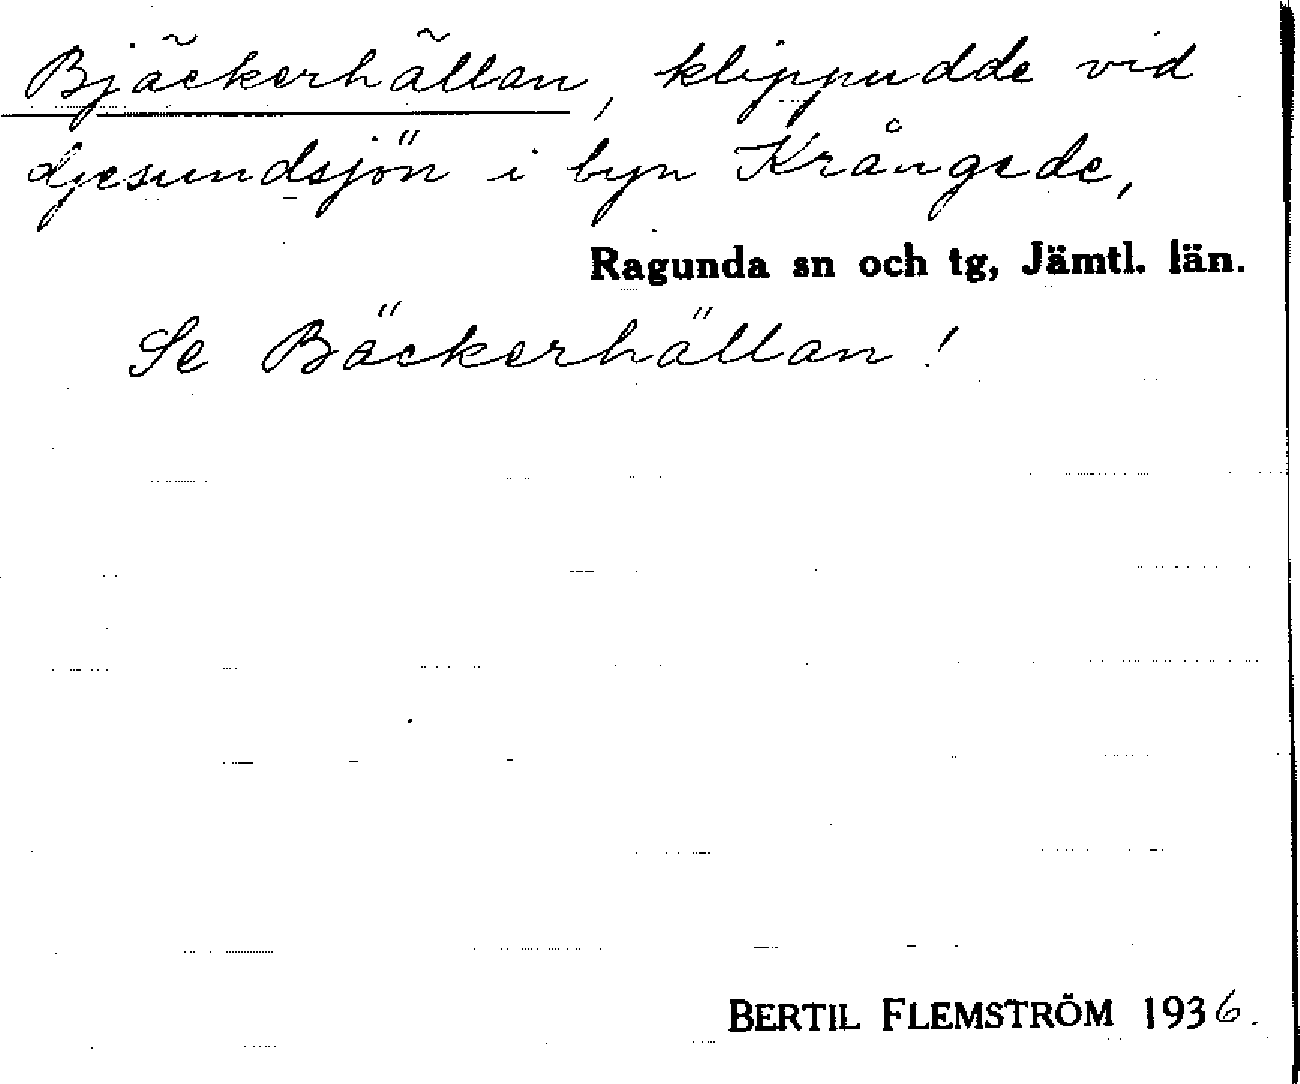 Bjäckerhällan, klippudde vid
Gjesundsjön i byn Krångede,
Ragunda sn och tg, Jämtl. län.
Se Bäckerhällan!
BERTIL FLEMSTRÖM 1936.